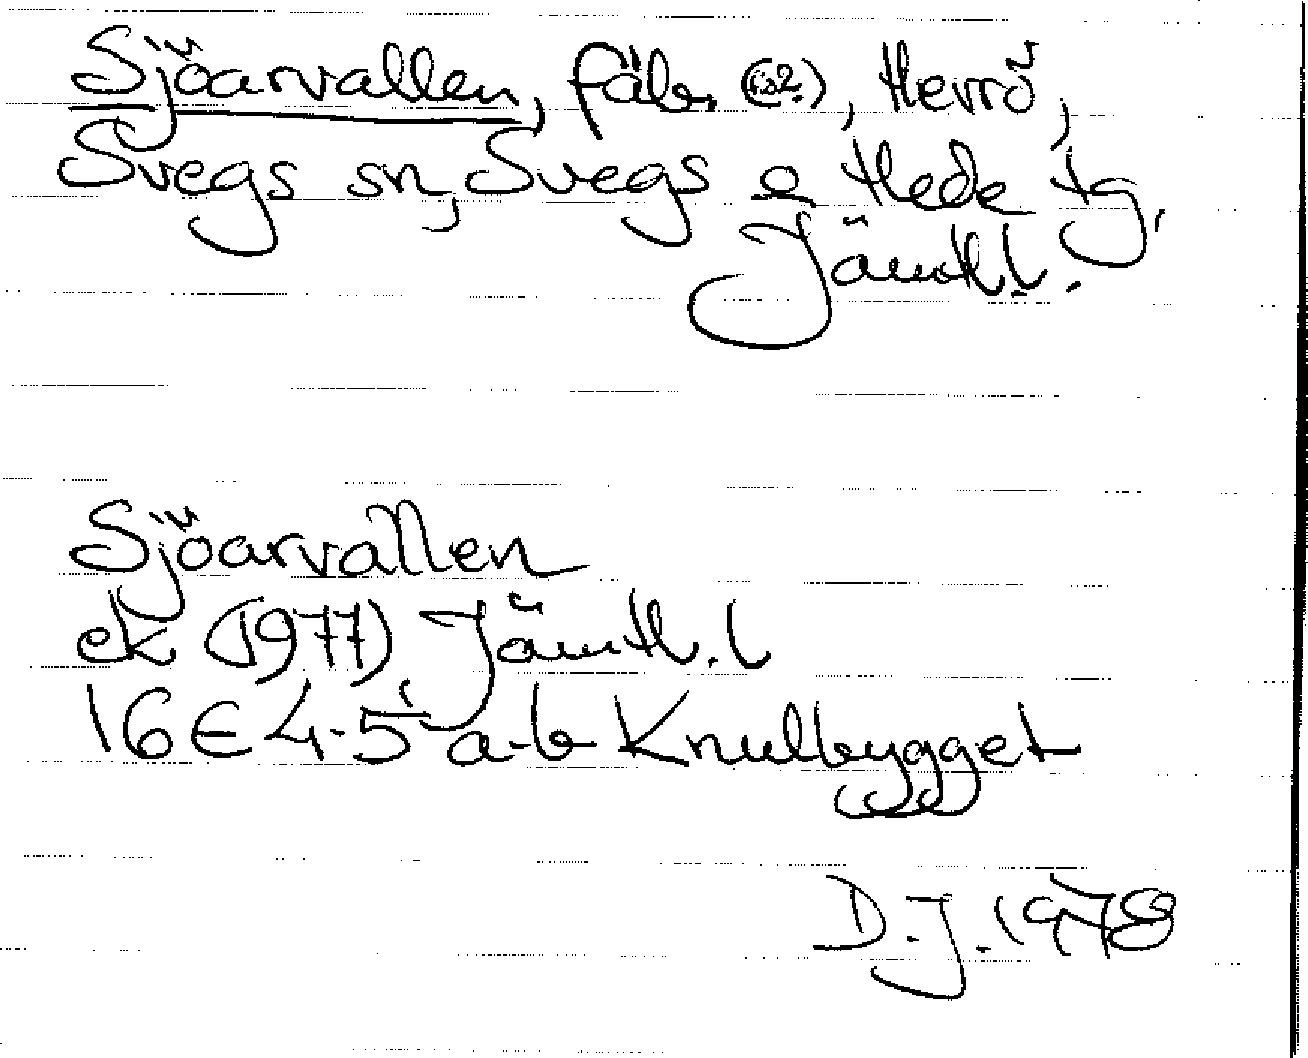 Sjöarvallen, fäb. , Herrö,
Svegs sn, Svegs o Hede tg,
Jämtl. l.
Sjöarvallen
ek (1977) Jämtl. l
16E 4-5 a-b Knulbygget
D.J. 1978